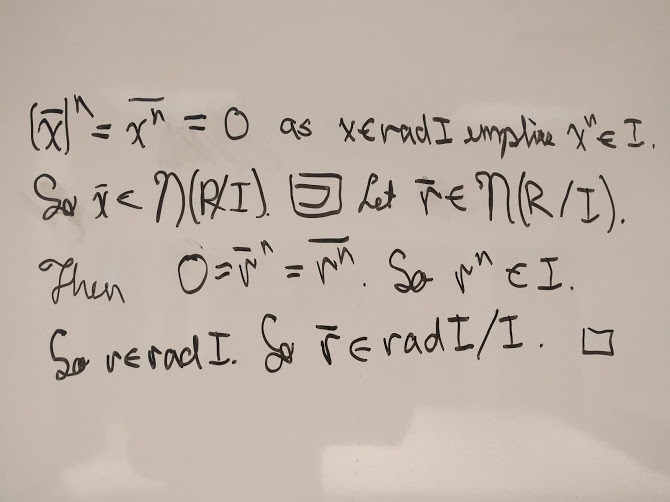 (x̄)ⁿ = \overline{xⁿ} = 0 as x∈rad I implies xⁿ∈ I.
So x̄ ∈ 𝔑(R/I). ⊇ Let r̄ ∈ 𝔑(R/I).
Then 0 = r̄ⁿ = \overline{rⁿ}. So rⁿ ∈ I.
So r∈rad I. So r̄ ∈ rad I/I. □